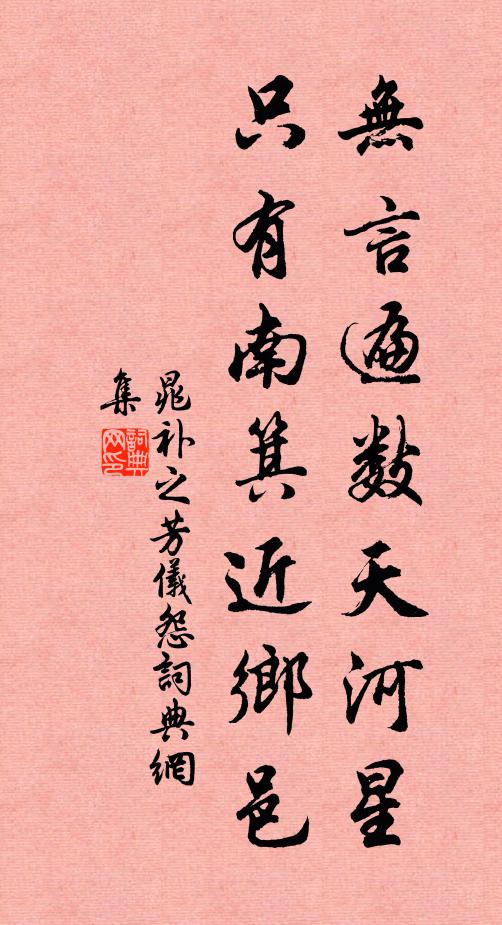 無言遍數天河星
只有南箕近鄉邑
晁补之芳儀怨詞典網
集
詞典
网印